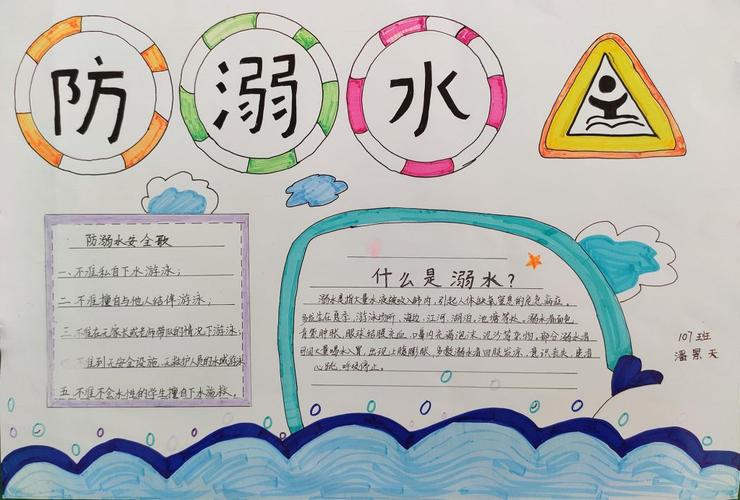 防溺水
防溺水安全歌
一、不准私自下水游泳；
二、不准擅自与他人结伴游泳；
三、不准在无家长或老师带队的情况下游泳；
四、不准到无安全设施、无救护人员的水域游泳
五、不准不会水性的学生擅自下水施救。
什么是溺水？
溺水是指大量水液被吸入肺内，引起人体缺氧窒息的危急病症。
多发生在夏季，游泳场所、海边、江河、湖泊、池塘等处。溺水者面色
青紫肿胀，眼球结膜充血，口鼻内充满泡沫、泥沙等杂物。部分溺水者
可因大量喝水入胃，出现上腹膨胀。多数溺水者四肢发凉，意识丧失，重者
心跳、呼吸停止。
107班
潘景天